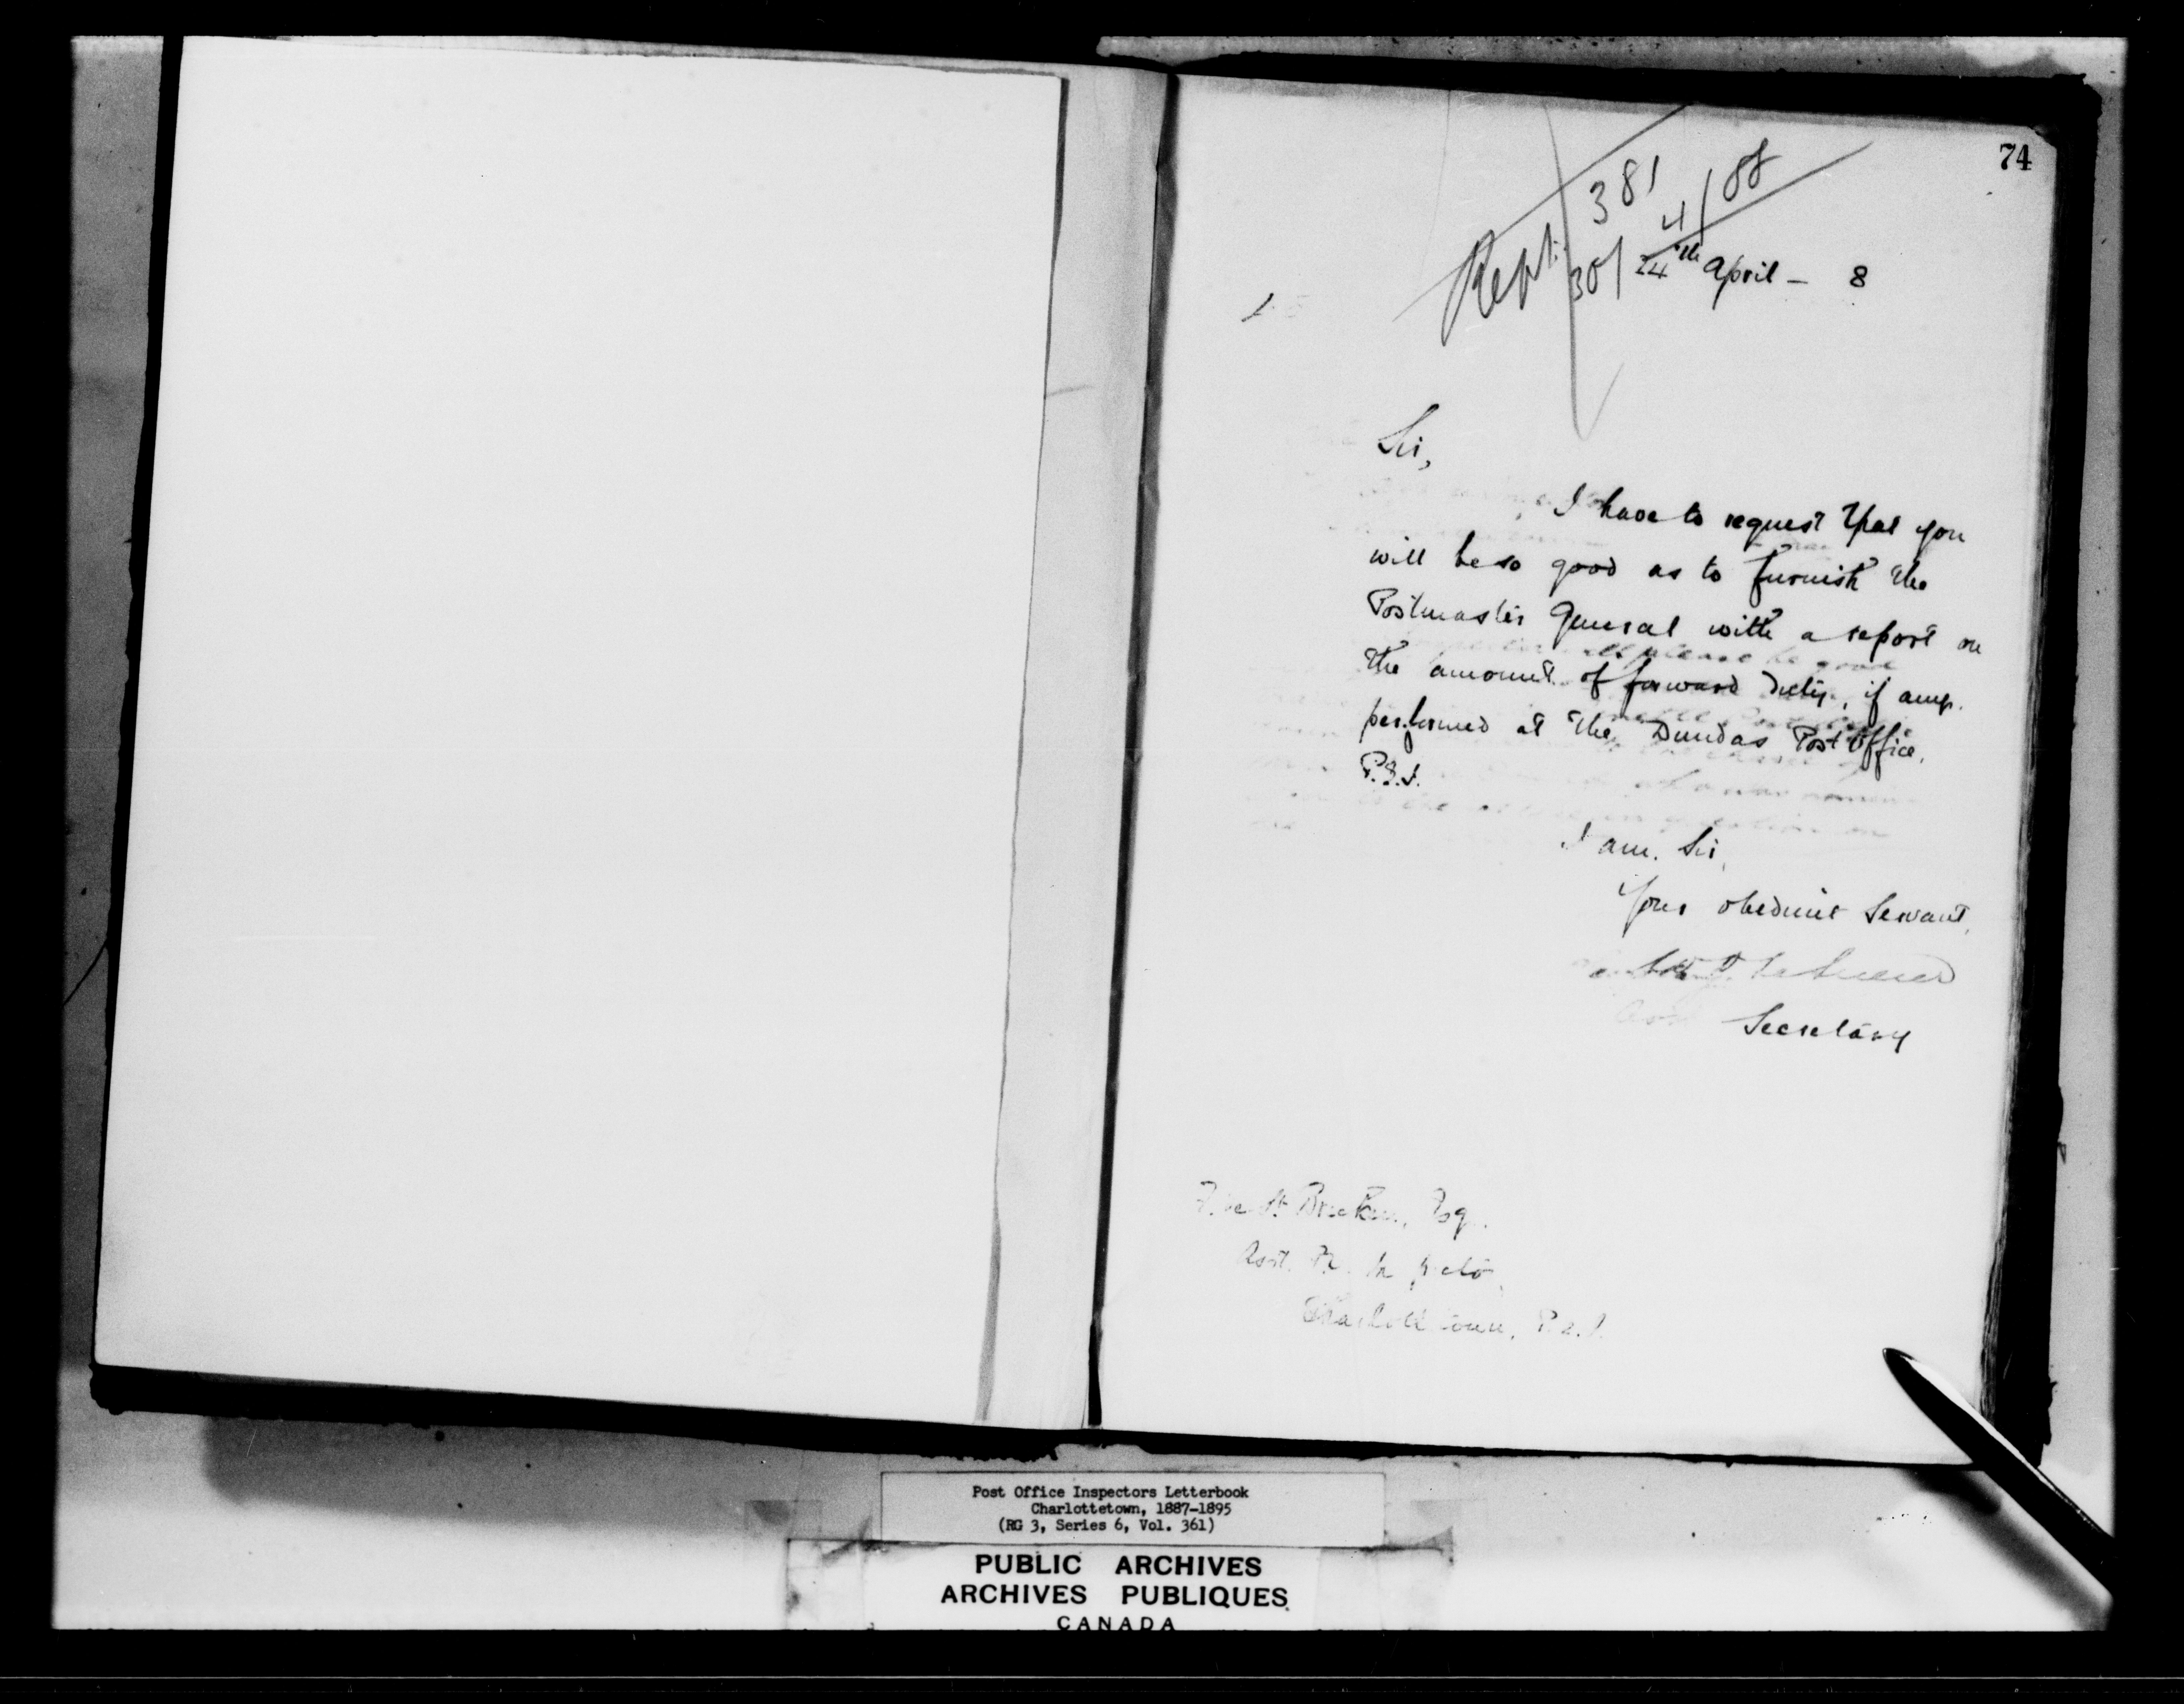 74
Rept. 381
30/4/88
24th April - 8
Sir,
I have to request that you
will be so good as to furnish the
Postmaster General with a report on
the amount of forward duty, if any.
performed at the Dundas Post Office,
P.E.I.
I am. Sir,
Your obedient Servant,
Secretary
F. de St Brecken, Esq.
Asst. P.O. Inspector
Charlottetown, P.E.I.
Post Office Inspectors Letterbook
Charlottetown, 1887-1895
(RG 3, Series 6, Vol. 361)
PUBLIC ARCHIVES
ARCHIVES PUBLIQUES
CANADA